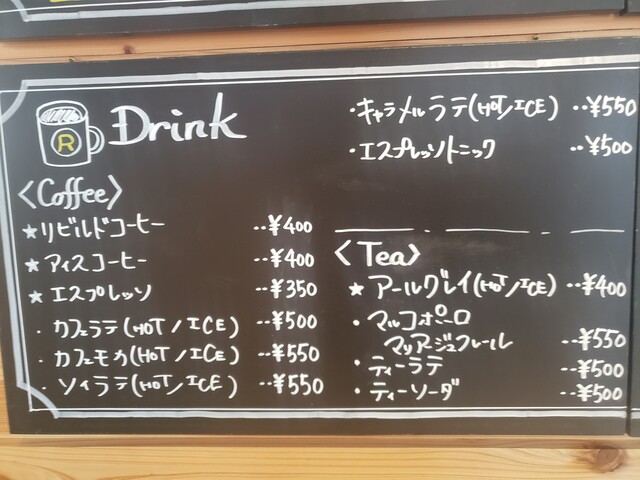 R Drink
<Coffee>
★リビルドコーヒー ‥¥400
★アイスコーヒー ‥¥400
★エスプレッソ ‥¥350
・カフェラテ(HOT/ICE) ‥¥500
・カフェモカ(HOT/ICE) ‥¥550
・ソイラテ(HOT/ICE) ‥¥550
・キャラメルラテ(HOT/ICE) ‥¥550
・エスプレッソトニック ‥¥500
<Tea>
★アールグレイ(HOT/ICE) ‥¥400
・マルコポーロ
マリアージュフレール ‥¥550
・ティーラテ ‥¥500
・ティーソーダ ‥¥500